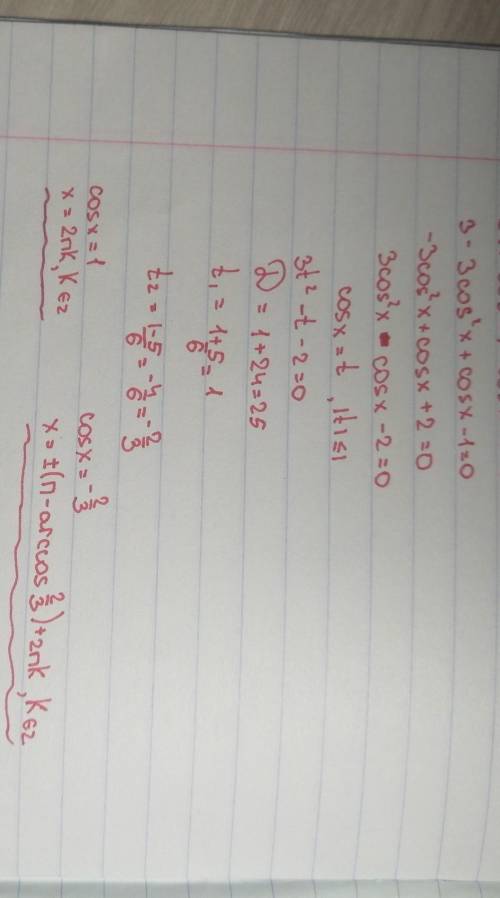 3 - 3cos²x + cosx - 1 = 0
-3cos²x + cosx + 2 = 0
3cos²x - cosx - 2 = 0
cosx = t, |t| ≤ 1
3t² - t - 2 = 0
D = 1 + 24 = 25
t₁ = (1+5)/6 = 1
t₂ = (1-5)/6 = -4/6 = -2/3
cosx = 1 cosx = -2/3
x = 2πk, k∈z x = ±(π - arccos 2/3) + 2πk, k∈z